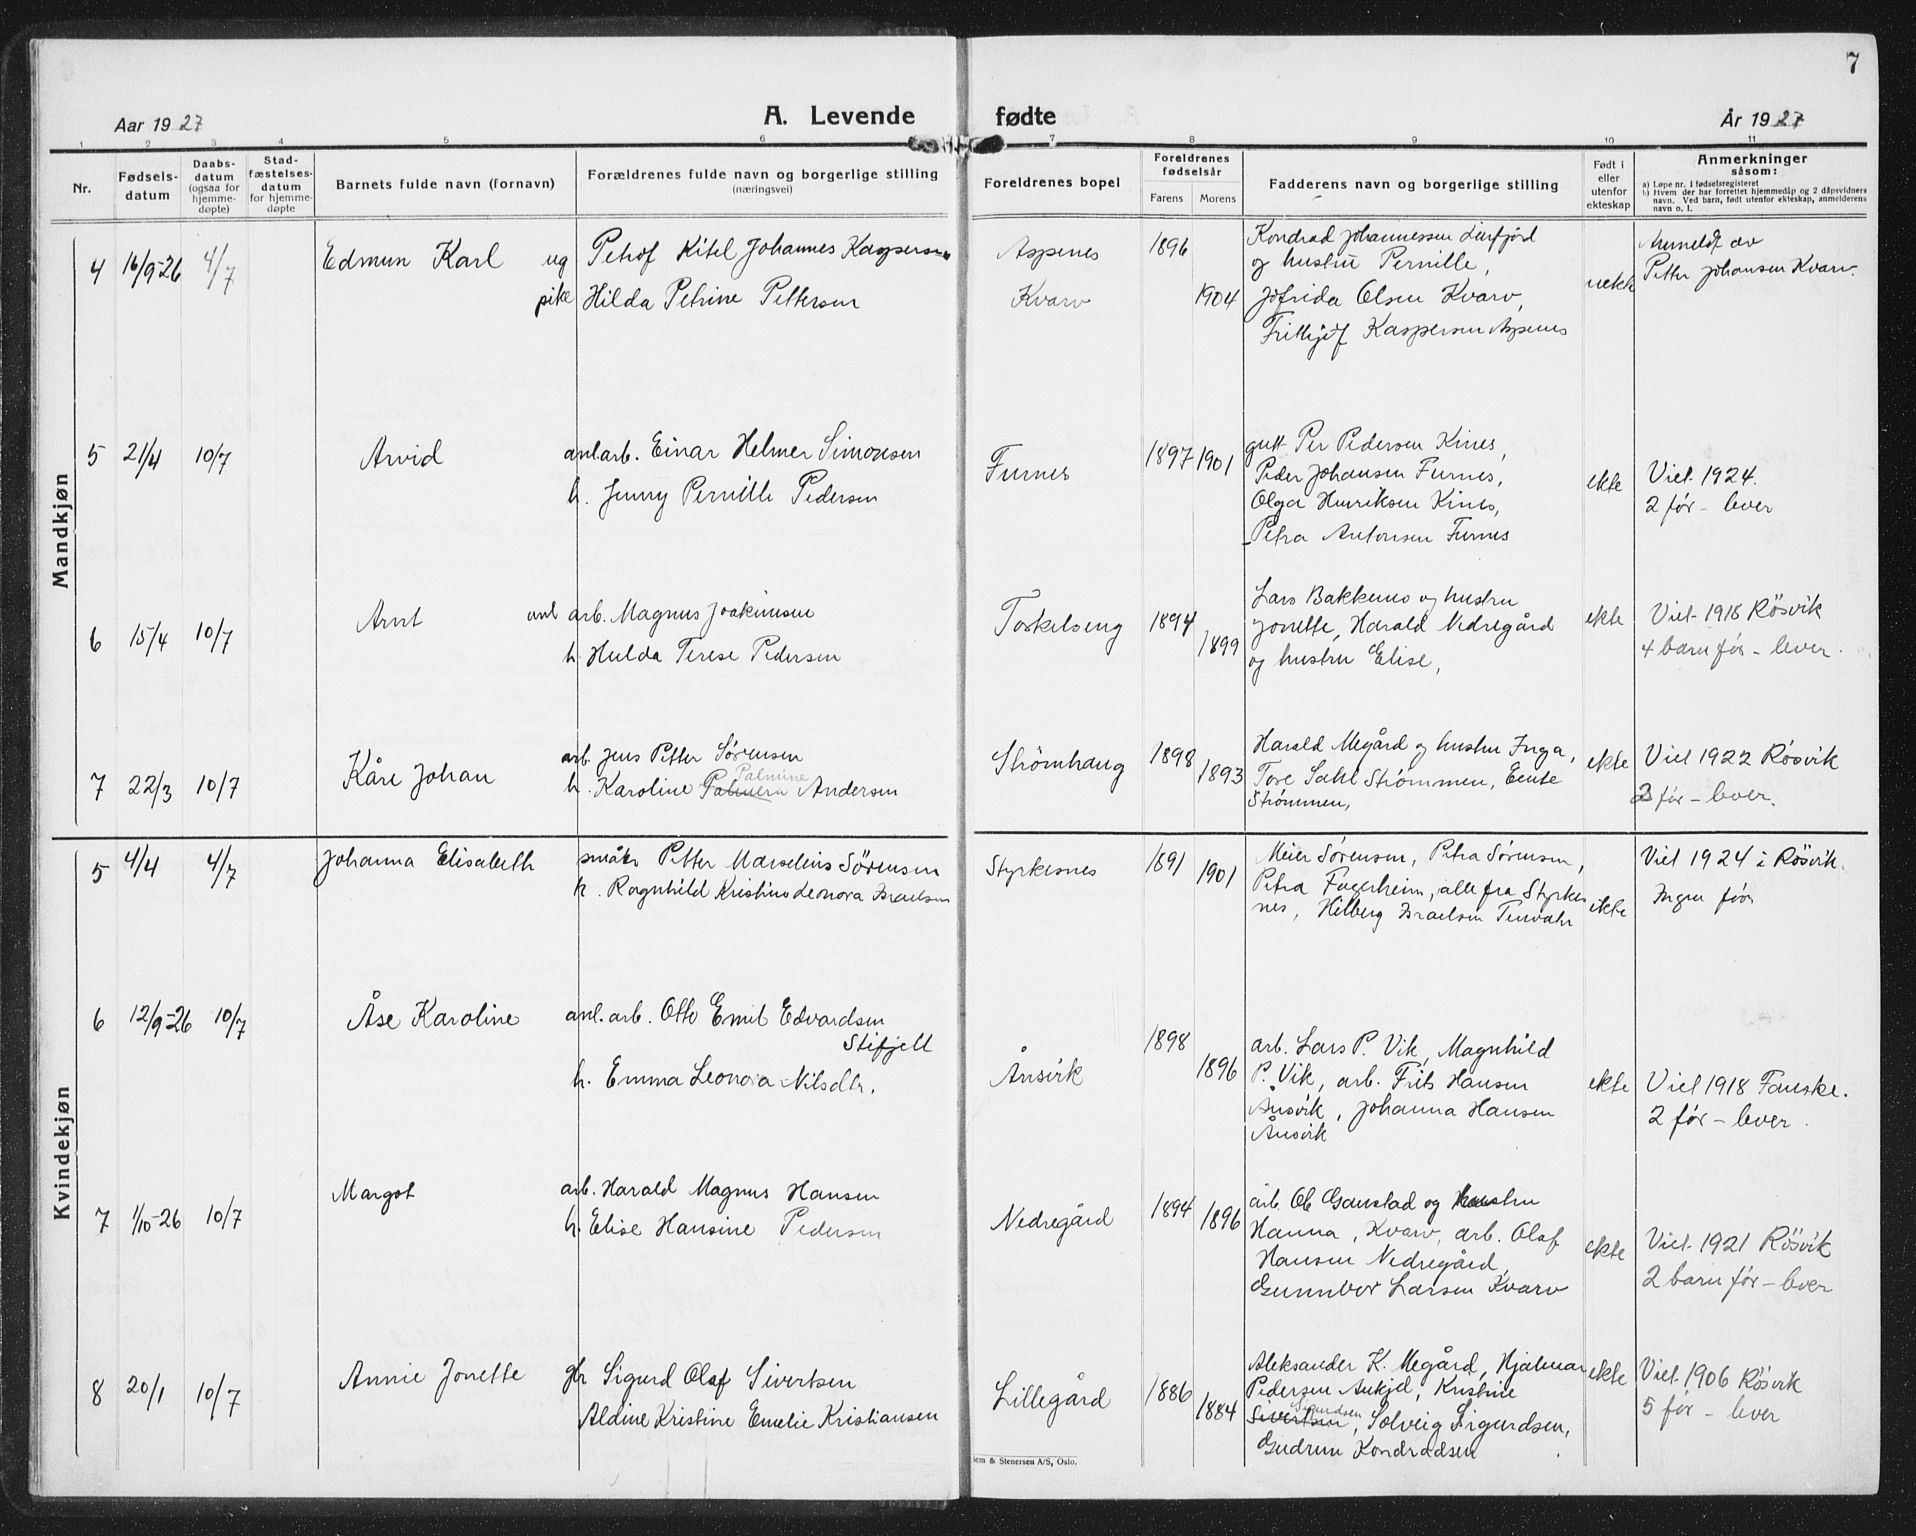 7
Aar 1927
A. Levende fødte
År 1927
1 2 3 4 5 6 7 8 9 10 11
Nr.
Fødsels-
datum
Daabs-
datum
(ogsaa for
hjemme-
døpte)
Stad-
fæstelses-
datum
for hjemme-
døpte
Barnets fulde navn (fornavn)
Forældrenes fulde navn og borgerlige stilling
(næringsvei)
Foreldrenes bopel
Foreldrenes
fødselsår
Farens
Morens
Fadderens navn og borgerlige stilling
Født i
eller
utenfor
ekteskap
Anmerkninger
såsom:
a) Løpe nr. i fødselsregisteret
b) Hvem der har forrettet hjemmedåp og 2 dåpsvidners
navn. Ved barn, født utenfor ekteskap, anmelderens
navn o. l.
Mandkjøn
4 16/9-26 4/7
Edmun Karl
ug Petrof Kitel Johannes Kaspersen
pike Hilda Petrine Pettersen
Aspenes
Kvarv
1896
1904
Kondrad Johannessen Leirfjord
og hustru Pernille,
Jofrida Olsen Kvarv,
Frithjof Kaspersen Aspenes
uekte
Anmeldt av
Petter Johansen Kvarv.
5 21/4 10/7
Arvid
anl.arb. Einar Helmer Simonsen
h. Jenny Pernille Pedersen
Furnes
1897 1901
gutt Per Pedersen Kines,
Peder Johansen Furnes,
Olga Henriksen Kines,
Petra Antonsen Furnes
ekte
Viet 1924.
2 før - lever
6 15/4 10/7
Arnt
anl arb. Magnus Joakimsen
h. Hulda Terese Pedersen
Torkelseng
1894
1899
Lars Bakkemo og hustru
Jonette, Harald Nedregård
og hustru Elise,
ekte
Viet 1918 Røsvik
4 barn før - lever.
7 22/3 10/7
Kåre Johan
arb. Jens Petter Sørensen
Palmine
h. Karoline Palmera Andersen
Strømhaug
1898
1893
Harald Megård og hustru Inga,
Tore Strømmen,
Strømmen,
ekte
Viet 1922 Røsvik
3 før - lever.
Kvindekjøn
5 4/4 4/7
Johanna Elisabeth
småbr Petter Marselius Sørensen
h. Ragnhild Kristine Leonora Israelsen
Styrkesnes
1891
1901
Meier Sørensen, Petra Sørensen,
Petra Fagerheim, alle fra Styrkes
nes, Hilberg Israelsen
ekte
Viet 1924 i Røsvik.
Ingen før
6 12/9-26 10/7
Åse Karoline
anl. arb. Otto Emil Edvardsen
Stifjell
h. Emma Leonora Nilsdtr.
Ånsvik
1898
1896
arb. Lars P. Vik, Magnhild
P. Vik, arb. Frits Hansen
Ånsvik, Johanna Hansen
Ånsvik
ekte
Viet 1918 Fauske.
2 før - lever.
7 1/10-26 10/7
Margot
arb. Harald Magnus Hansen
h. Elise Hansine Pedersen
Nedregård
1894
1896
arb. Ole Gaustad og hustru
Hanna, Kvarv, arb. Olaf
Hansen Nedregård,
Gunnbor Larsen Kvarv
ekte
Viet 1921 Røsvik
2 barn før - lever
8 20/1 10/7
Annie Jonette
gbr Sigurd Olaf Sivertsen
Aldine Kristine Emelie Kristiansen
Lillegård
1886
1884
Aleksander K. Megård, Hjalmar
Pedersen, Kristine
Sigurdsen
Sivertsen, Solveig Sigurdsen,
Gudrun Kondradsen
ekte
Viet 1906 Røsvik
5 før - lever
& Stenersen A/S, Oslo.